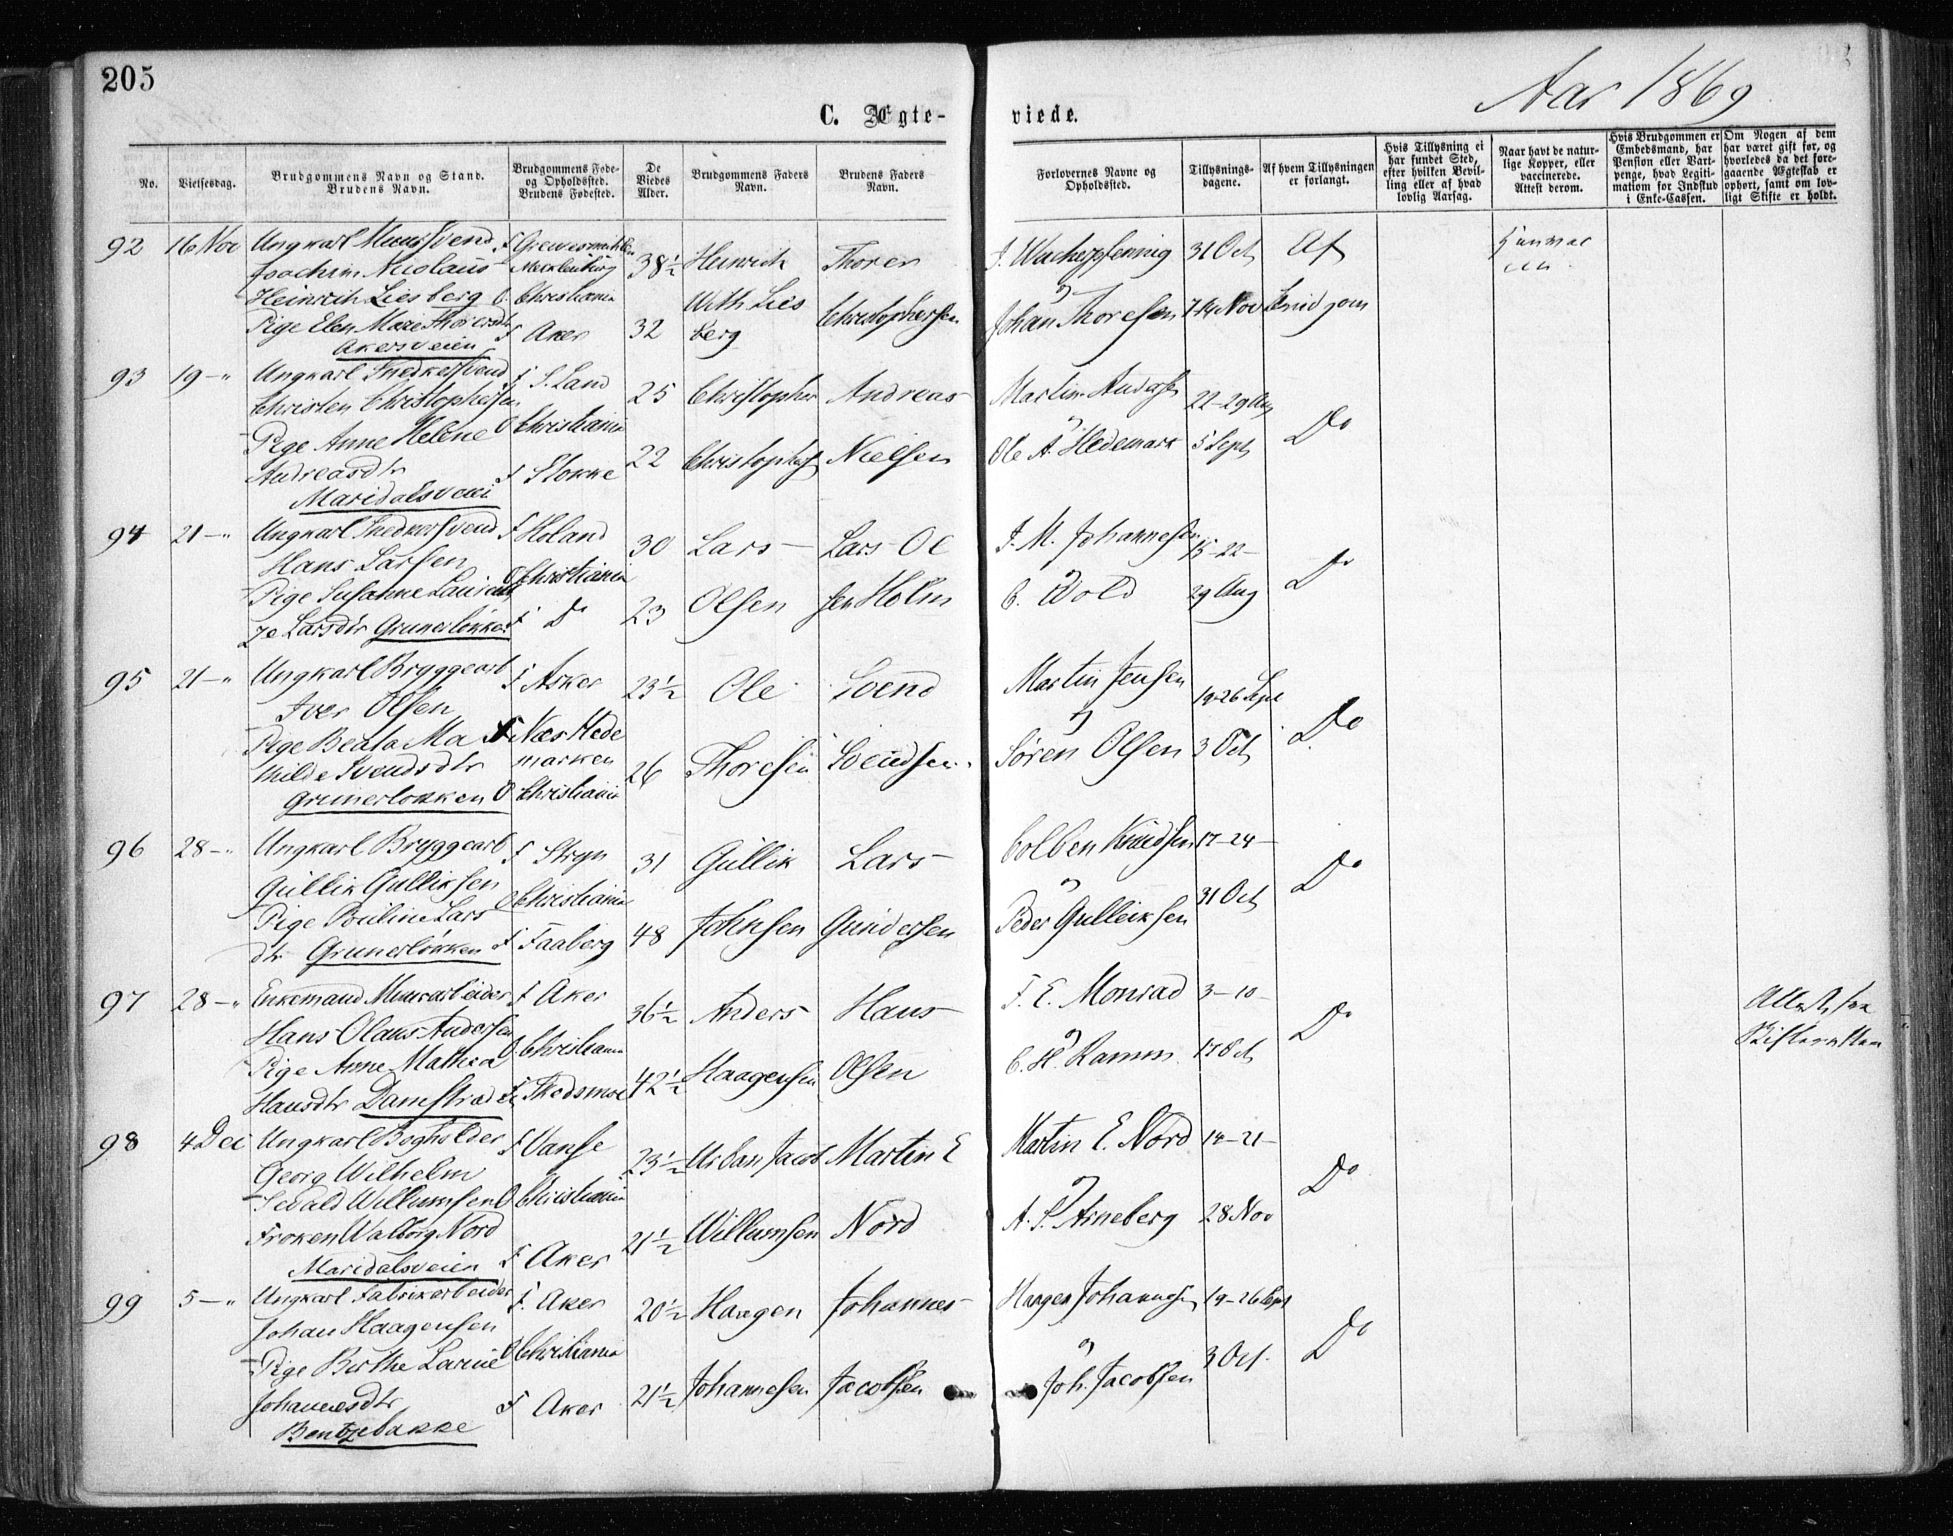 205
Aar 1869
C. Ægte-
viede.
No.
Vielsesdag.
Brudgommens Navn og Stand.
Brudens Navn.
Brudgommens Føde-
og Opholdssted.
Brudens Fødested.
De
Viedes
Alder.
Brudgommens Faders
Navn.
Brudens Faders
Navn.
Forlovernes Navne og
Opholdssted.
Tillysnings-
dagene.
Af hvem Tillysningen
er forlangt.
Hvis Tillysning ei
har fundet Sted,
efter hvilken Bevil-
ling eller af hvad
lovlig Aarsag.
Naar havt de natur-
lige Kopper, eller
vaccinerede.
Attest derom.
Hvis Brudgommen er
Embedsmand, har
Pension eller Vart-
penge, hvad Legiti-
mation for Indskud
i Enke-Cassen.
Om Nogen af dem
har været gift før, og
hvorledes da det fore-
gaaende Ægteskab er
ophørt, samt om lov-
ligt Skifte er holdt.
92 16 Nov Ungkarl Muursvend
Joachim Nicolaus
Heinrich Liesberg
Pige Elen Marie Thorersdtr
Akersveien
F Grevesmühlen
Mecklenburg
O. Christiania
F Aker
38½
32
Heinrich
With Lies
berg
Thorer
Christophersen
J. Wachenpfennig
og
Johan Thoresen
31 Oct
7-14 Nov
Af
Brudgom
93 19 - " Ungkarl Snedkersvend
Christen Christophersen
Pige Anne Helene
Andreasdtr
Maridalsveien
F S. Land
O Christiania
F Stokke
25
22
Christopher
Christophers
Andreas
Nielsen
Martin Anders
og
Ole A. Hedemark
22-29 Aug
5 Sept
Do
94 21 - " Ungkarl Snedkersvend
Hans Larsen
Pige Susanne Laurent
ze Larsdtr Grunerløkken
F Høland
O Christiania
F Do
30
23
Lars
Olsen
Lars Ol
sen Holm
J. M. Johannesen
og
C. Wold
15-22-
29 Aug
Do
95 21 - " Ungkarl Bryggearb
Iver Olsen
Pige Beata Ma
thilde Svendsdtr
Grunerløkken
F Asker
F Næs Hede
marken
O Christiania
23½
26
Ole
Thoresen
Svend
Svendsen
Martin Jensen
og
Søren Olsen
19-26 Sept
3 Oct
Do
96 28 - " Ungkarl Bryggearb
Gullik Gulliksen
Pige Pouline Lars
dtr Grunerløkken
F Stryn
O Christiania
F Faaberg
31
48
Gullik
Johnsen
Lars
Gundersen
Colben Knudsen
og
Peder Gulleiksen
17-24-
31 Oct
Do
97 28 - " Enkemand Muurarbeider
Hans Olaus Andersen
Pige Anne Mathea
Hansdtr Damstrædet
F Aker
O Christiania
F Skedsmoe
36½
42½
Anders
Haagensen
Hans
Olsen
F. E. Monrad
og
C. H. Ramm
3-10-
17 Oct
Do
Attest fra
Skifteretten
98 4 Dec Ungkarl Bogholder
Georg Wilhelm
Sevald Willumsen
Frøken Walborg Nord
Maridalsveien
F Vanse
O Christiania
F Aker
23½
21½
Urban Jacob
Willumsen
Martin E
Nord
Martin E. Nord
og
A. S. Arneberg
14-21-
28 Nov
Do
99 5 - " Ungkarl Fabrikarbeider
Johan Haagensen
Pige Birthe Larine
Johannesdtr
Bentzebakke
F. Aker
O Christiania
F Aker
20½
21½
Haagen
Johannesen
Johannes
Jacobsen
Haagen Johannesen
og
Joh. Jacobsen
19-26 Sept
3 Oct.
Do